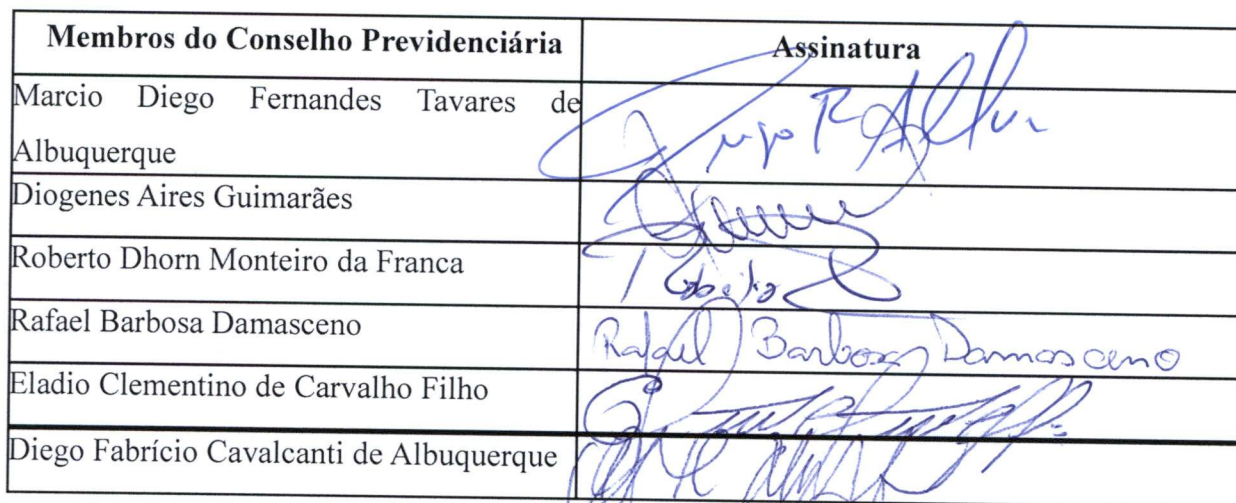 Membros do Conselho Previdenciária Assinatura
Marcio Diego Fernandes Tavares de
Albuquerque
Diogenes Aires Guimarães
Roberto Dhorn Monteiro da Franca
Rafael Barbosa Damasceno Rafael Barbosa Damasceno
Eladio Clementino de Carvalho Filho
Diego Fabrício Cavalcanti de Albuquerque